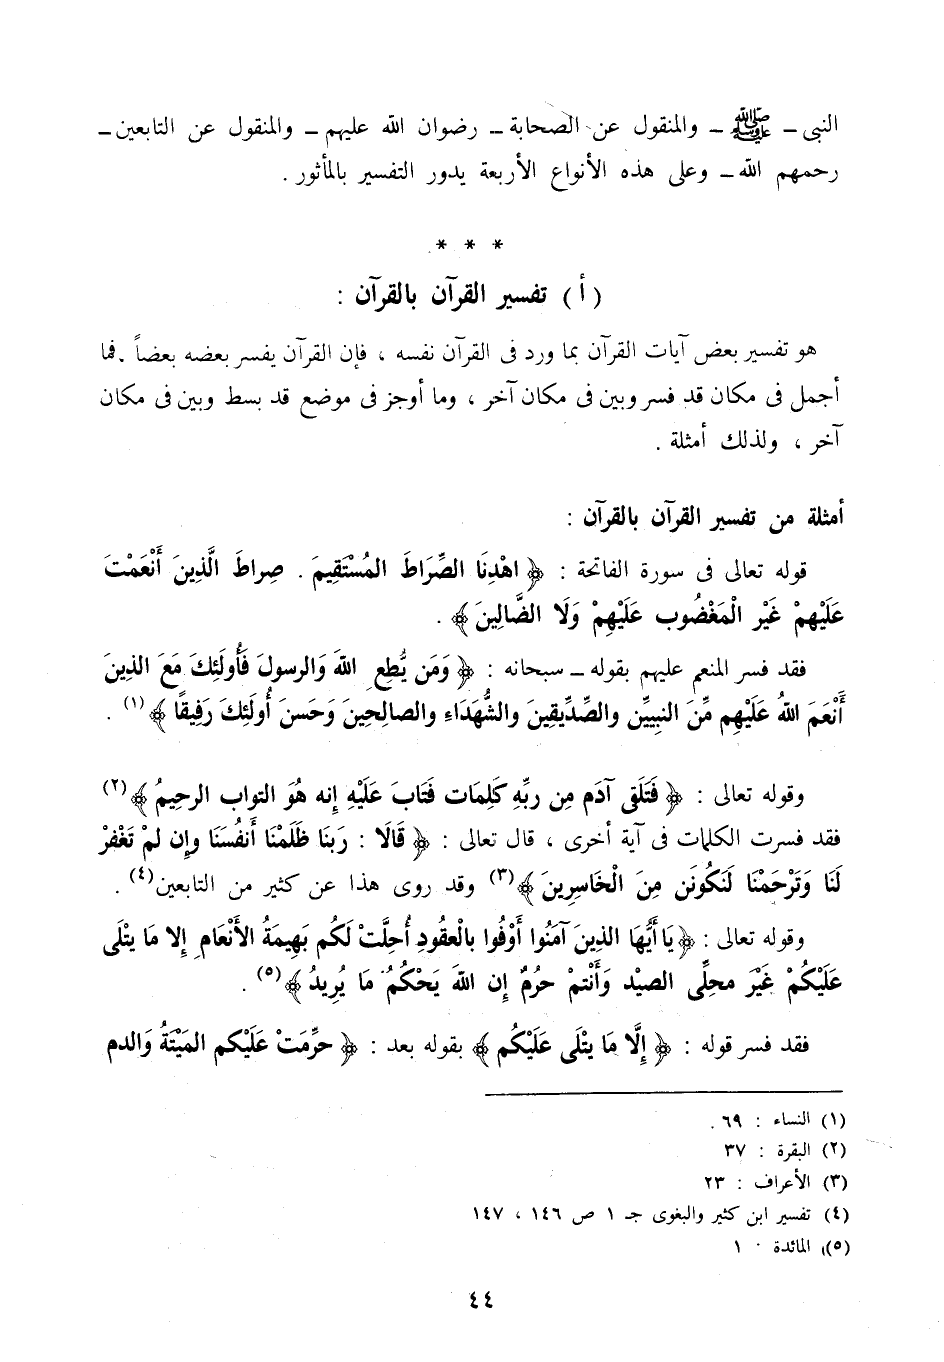 النبى ــ ﷺ ــ والمنقول عن الصحابة ــ رضوان الله عليهم ــ والمنقول عن التابعين ــ
رحمهم الله ــ وعلى هذه الأنواع الأربعة يدور التفسير بالمأثور .
* * *
( أ ) تفسير القرآن بالقرآن :
هو تفسير بعض آيات القرآن بما ورد فى القرآن نفسه ، فإن القرآن يفسر بعضه بعضاً . فما
أجمل فى مكان قد فسر وبين فى مكان آخر ، وما أوجز فى موضع قد بسط وبين فى مكان
آخر ، ولذلك أمثلة .
أمثلة من تفسير القرآن بالقرآن :
قوله تعالى فى سورة الفاتحة : ﴿ اهْدِنَا الصِّرَاطَ المُسْتَقِيمَ . صِراطَ الَّذِينَ أَنْعَمْتَ
عَلَيْهِمْ غَيْرِ الْمَغْضُوبِ عَلَيْهِمْ وَلَا الضَّالِينَ ﴾ .
فقد فسر المنعم عليهم بقوله ــ سبحانه : ﴿ وَمَن يُطِعِ اللهَ وَالرسولَ فَأُولَئِكَ مَعَ الذِينَ
أَنْعَمَ اللهُ عَلَيْهِم مِّنَ النبيِّن والصِّدِّيقِينَ والشُّهَدَاءِ والصالِحِينَ وَحَسنَ أُولَئِكَ رَفِيقًا ﴾ (١) .
وقوله تعالى : ﴿ فَتَلَقى آدَم مِن ربِّهِ كَلِمَات فَتَابَ عَلَيْهِ إنه هُوَ التواب الرحِيمُ ﴾ (٢)
فقد فسرت الكلمات فى آية أخرى ، قال تعالى : ﴿ قَالَا : رَبنَا ظَلَمْنَا أَنفُسَنَا وإِن لمْ تَغْفِرْ
لَنَا وَتَرْحَمْنَا لَنَكُونَن مِنَ الْخَاسِرِينَ ﴾ (٣) وقد روى هذا عن كثير من التابعين (٤) .
وقوله تعالى : ﴿ يَا أَيُّهَا الذِينَ آمَنُوا أَوْفُوا بالْعقُودِ أُحِلَّتْ لَكُم بَهِيمَةُ الأَنْعَامِ إلا مَا يتْلَى
عَلَيْكُمْ غَيْرَ محِلِّى الصيْد وَأَنْتمْ حُرُمٌ إِن اللهَ يَحْكُمُ مَا يُرِيدُ ﴾ (٥) .
فقد فسر قوله : ﴿ إِلَّا مَا يتْلَى عَلَيْكُم ﴾ بقوله بعد : ﴿ حرِّمَتْ عَلَيْكم الميْتَةُ وَالدم
(١) النساء : ٦٩ .
(٢) البقرة : ٣٧
(٣) الأعراف : ٢٣
(٤) تفسير ابن كثير والبغوى جـ ١ ص ١٤٦ ، ١٤٧
(٥) المائدة ٠ ١
٤٤